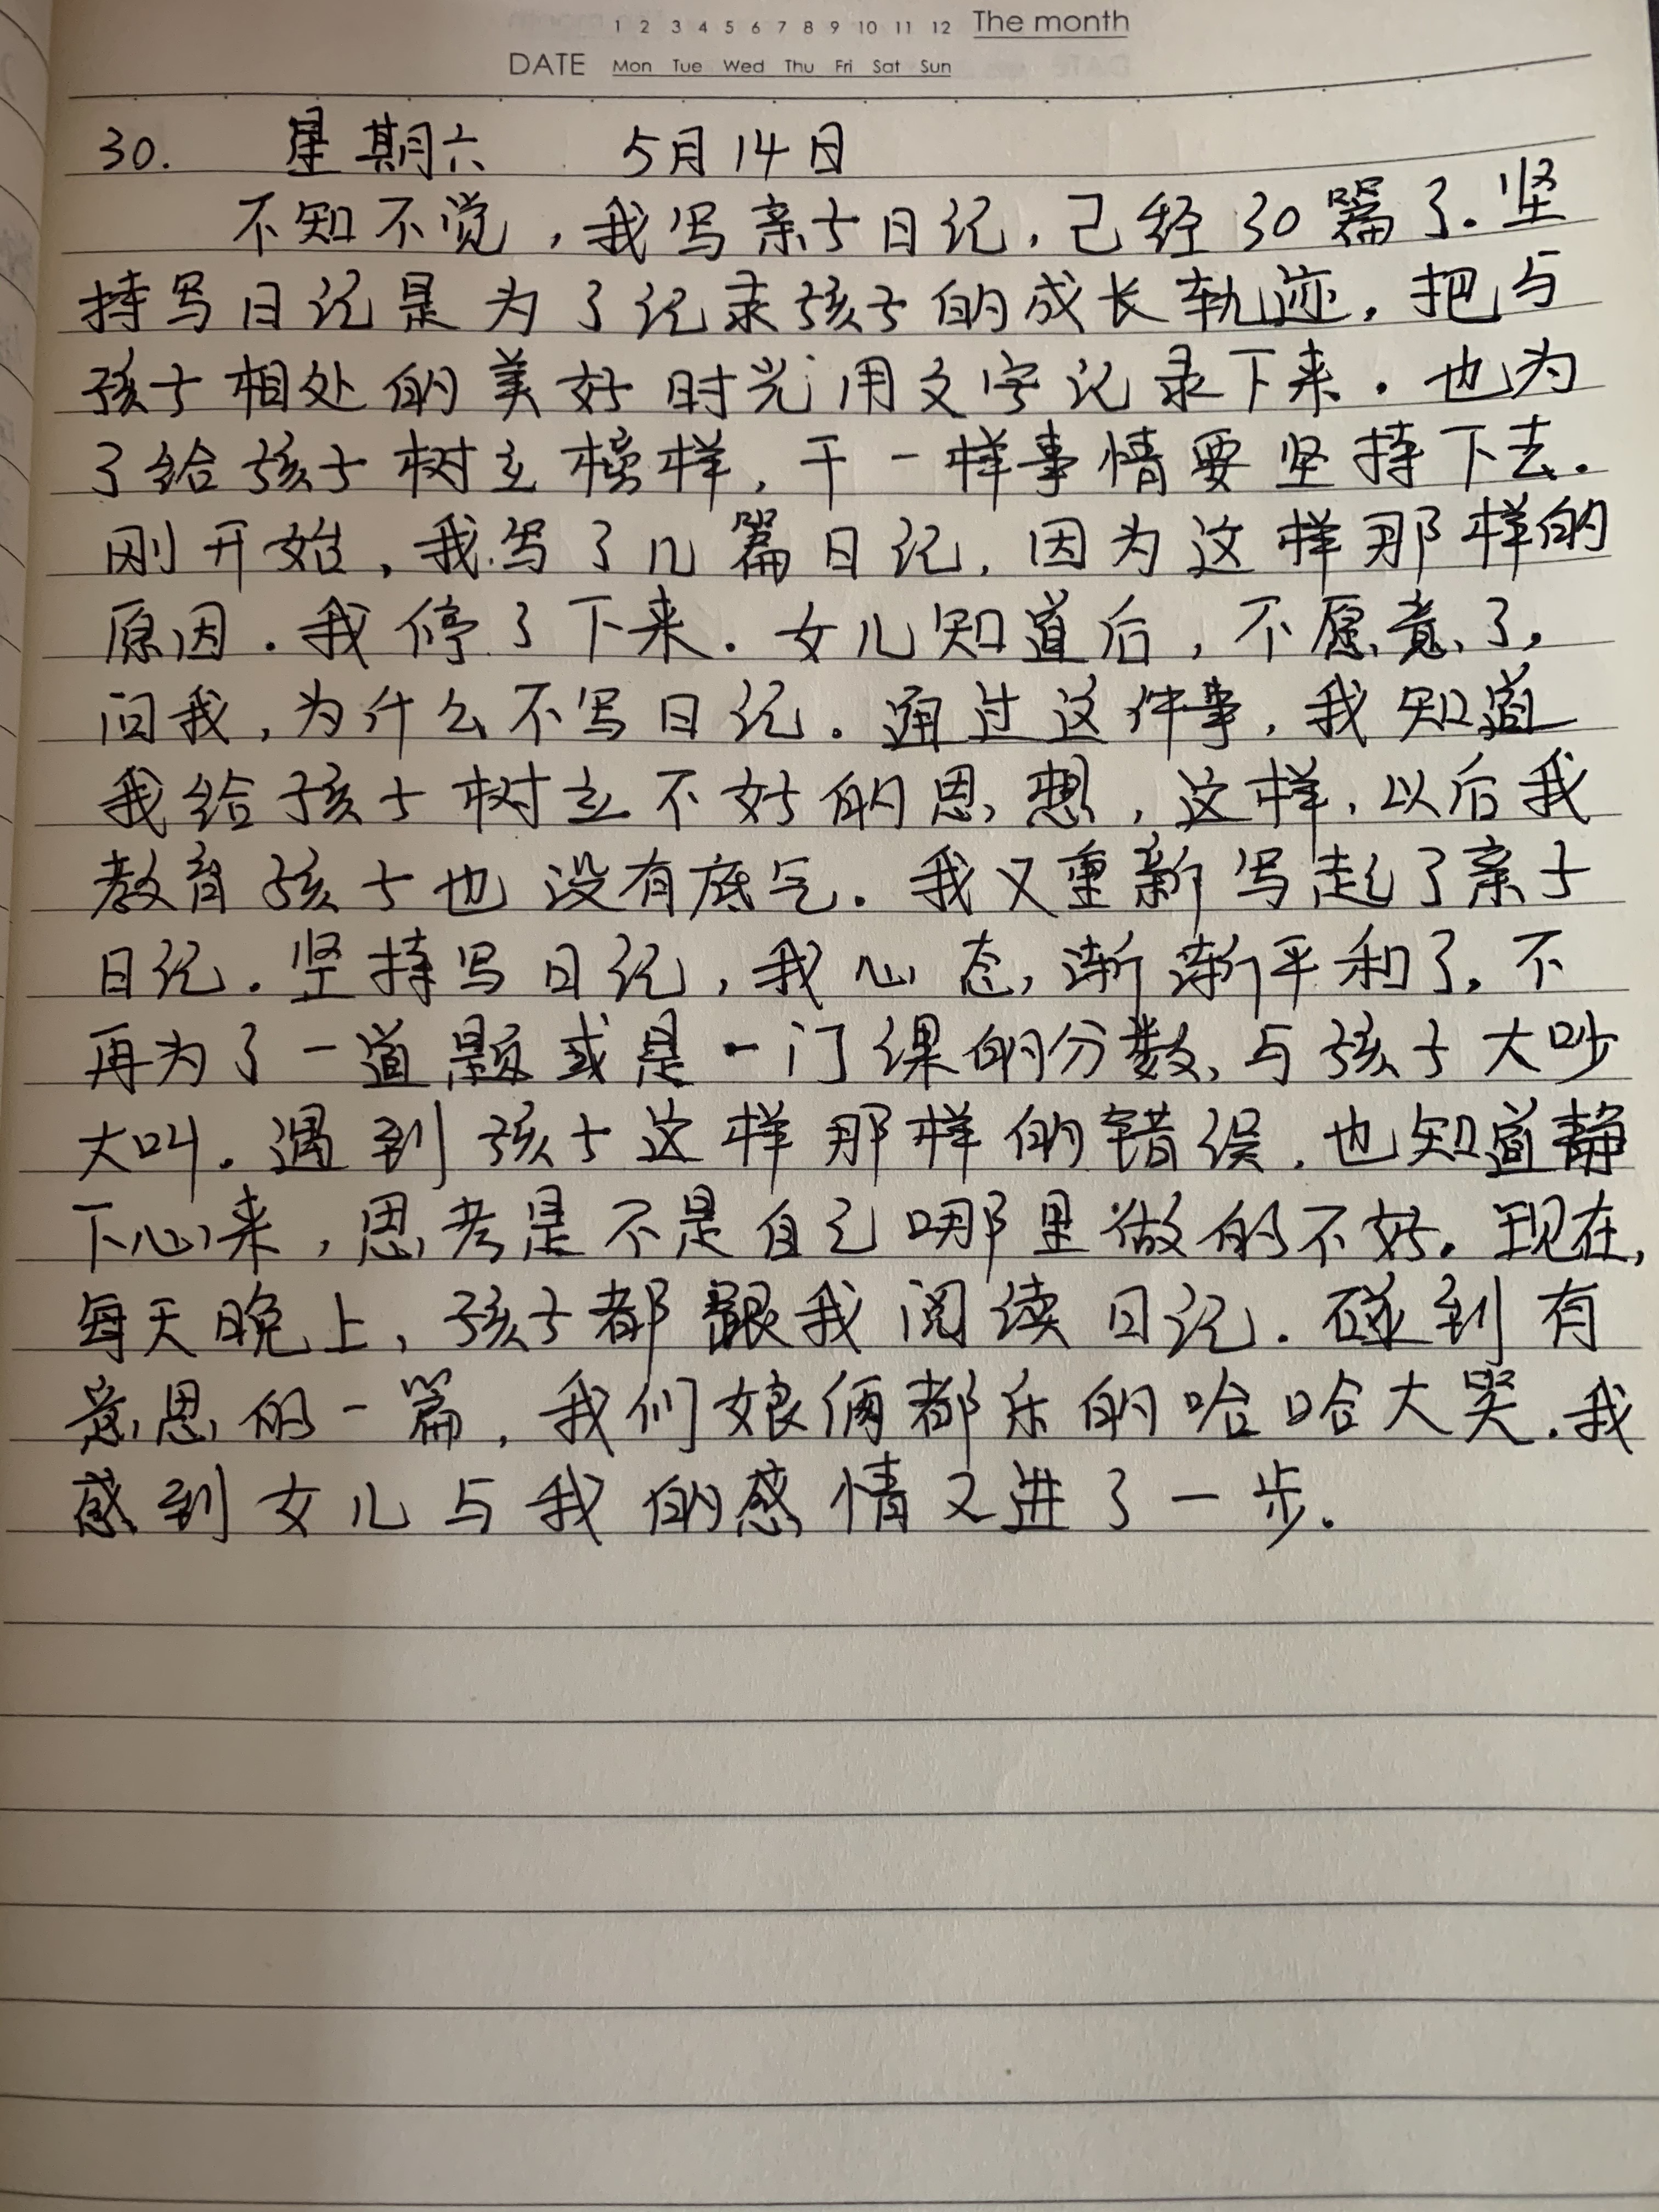 1 2 3 4 5 6 7 8 9 10 11 12 The month
DATE Mon Tue Wed Thu Fri Sat Sun
30. 星期六 5月14日
不知不觉，我写亲子日记，己经30篇了.坚
持写日记是为了记录孩子的成长轨迹，把与
孩子相处的美好时光用文字记录下来.也为
了给孩子树立榜样，干一样事情要坚持下去.
刚开始，我写了几篇日记，因为这样那样的
原因.我停了下来.女儿知道后，不愿意了，
问我，为什么不写日记.通过这件事，我知道
我给孩子树立不好的思想，这样，以后我
教育孩子也没有底气.我又重新写起了亲子
日记.坚持写日记，我心态，渐渐平和了，不
再为了一道题或是一门课的分数，与孩子大吵
大叫.遇到孩子这样那样的错误，也知道静
下心来，思考是不是自己哪里做的不好.现在，
每天晚上，孩子都跟我阅读日记.碰到有
意思的一篇，我们娘俩都乐的哈哈大哭.我
感到女儿与我的感情又进了一步.